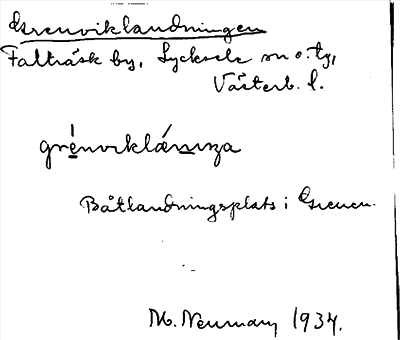 Grenviklandningen
Falträsk by, Lycksele sn o. ty,
Västerb. l.
grènviklánnıza
Båtlandningsplats i Grenen.
M. Neuman, 1934.